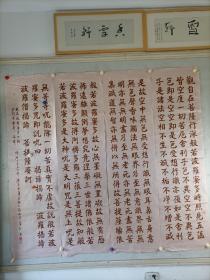 觀自在菩薩行深般若波羅蜜多時照見五蘊
皆空度一切苦厄舍利子色不異空空不異
色色即是空空即是色受想行識亦復如是舍利
子是諸法空相不生不滅不垢不淨不增不減
是故空中無色無受想行識無眼耳鼻舌身意
無色聲香味觸法無眼界乃至無意識界無無
明亦無無明盡乃至無老死亦無老死盡無苦
集滅道無智亦無得以無所得故菩提薩埵依
般若波羅蜜多故心無罣礙無罣礙故無有恐
怖遠離顛倒夢想究竟涅槃三世諸佛依般若
波羅蜜多故得阿耨多羅三藐三菩提故知般
若波羅蜜多是大神咒是大明咒是無上咒是
無等等咒能除一切苦真實不虛故說般若波
羅蜜多咒即說咒曰 揭諦揭諦 波羅揭諦
波羅僧揭諦 菩提薩婆訶